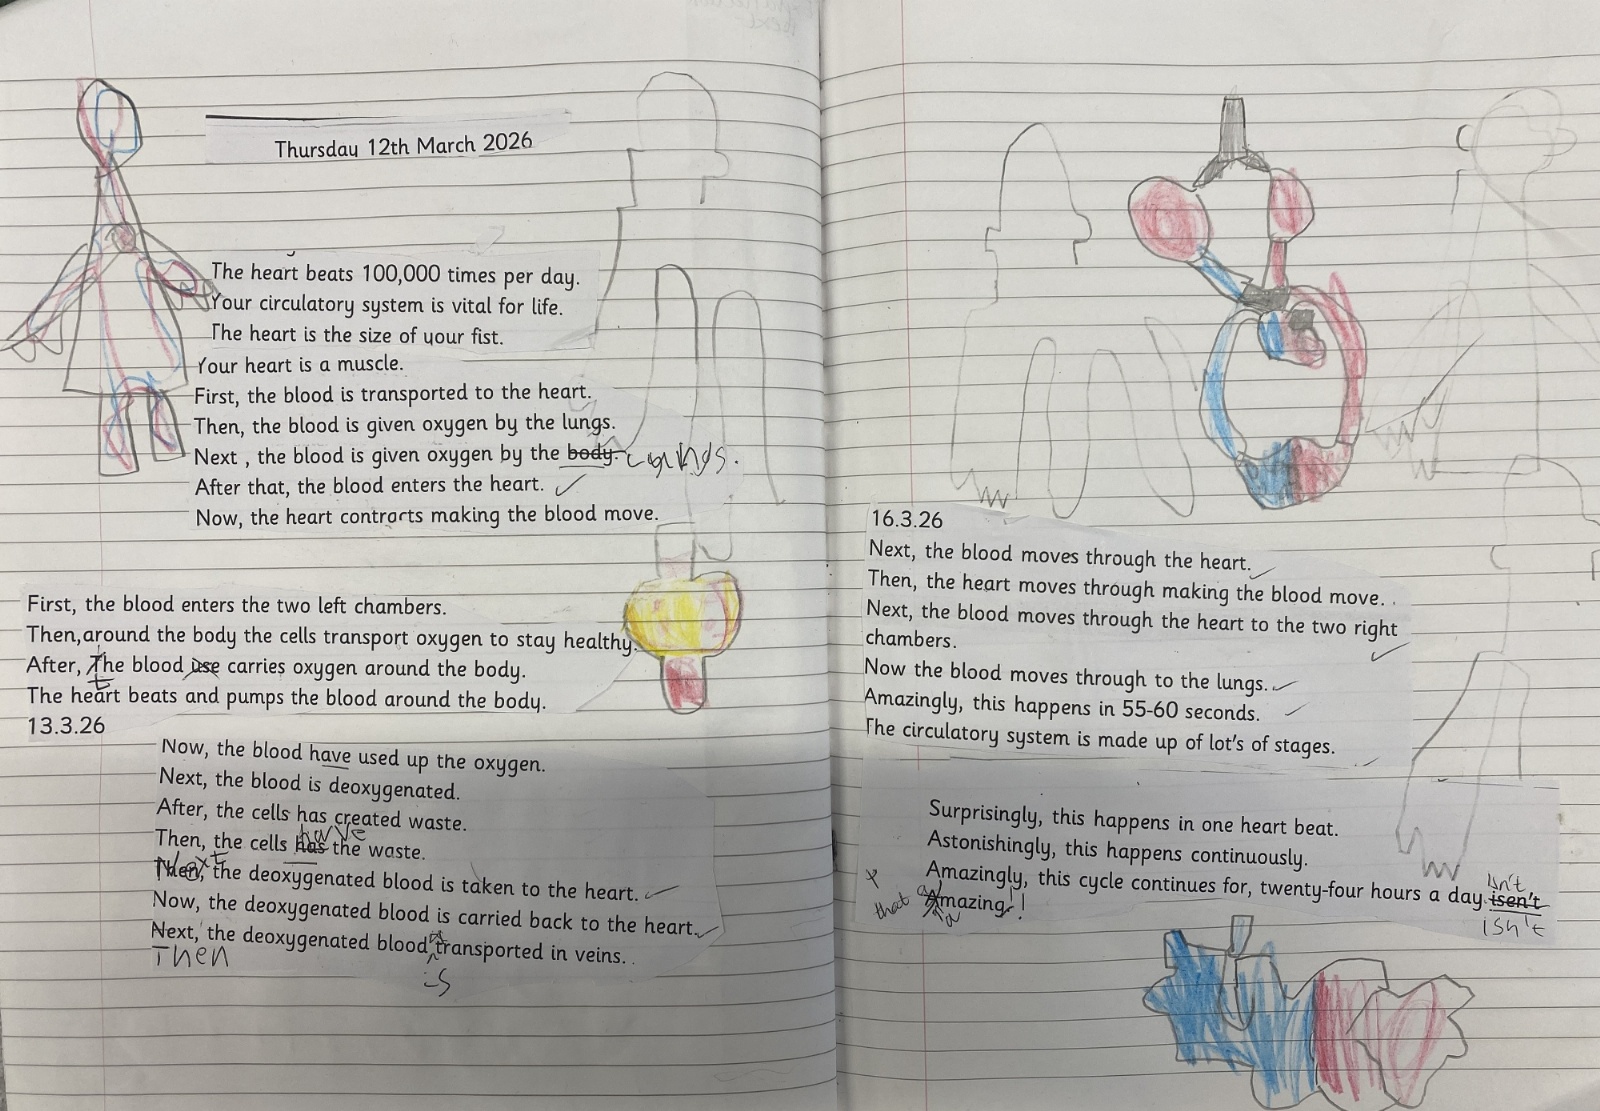 Thursday 12th March 2026
The heart beats 100,000 times per day.
Your circulatory system is vital for life.
The heart is the size of your fist.
Your heart is a muscle.
First, the blood is transported to the heart.
Then, the blood is given oxygen by the lungs.
Next , the blood is given oxygen by the body.
After that, the blood enters the heart.
Now, the heart contracts making the blood move.
First, the blood enters the two left chambers.
Then,around the body the cells transport oxygen to stay healthy.
After, The blood use carries oxygen around the body.
t
The heart beats and pumps the blood around the body.
13.3.26
Now, the blood have used up the oxygen.
Next, the blood is deoxygenated.
After, the cells has created waste.
Then, the cells has the waste.
Then, the deoxygenated blood is taken to the heart.
Next
Now, the deoxygenated blood is carried back to the heart.
Next, the deoxygenated blood transported in veins.
Then
is
16.3.26
Next, the blood moves through the heart.
Then, the heart moves through making the blood move. .
Next, the blood moves through the heart to the two right
chambers.
Now the blood moves through to the lungs.
Amazingly, this happens in 55-60 seconds.
The circulatory system is made up of lot's of stages.
Surprisingly, this happens in one heart beat.
Astonishingly, this happens continuously.
isn't
Amazingly, this cycle continues for, twenty-four hours a day isen't
that Amazing!!
isn't